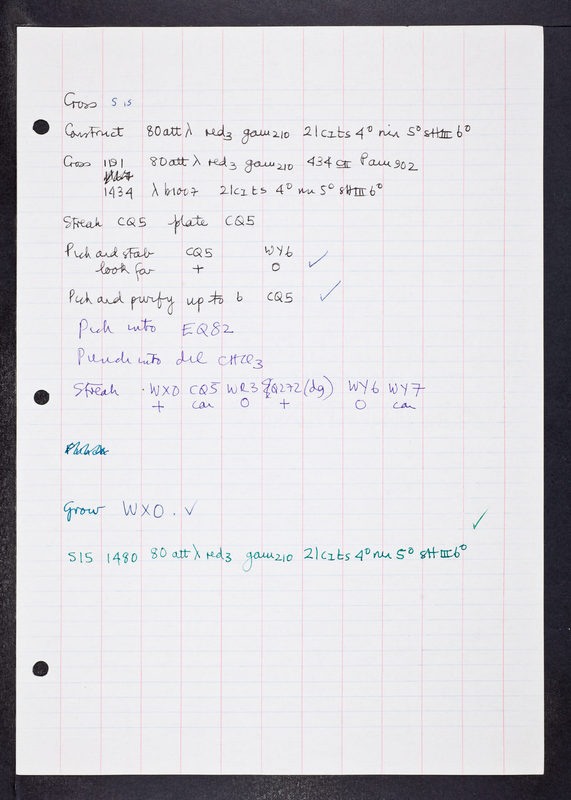 Cross S15
Construct 80att λ red3 gam210 21cIts 4° nin 5° sHIII 6°
Cross 1191 80att λ red3 gam210 434 cI Pam902
1434 λ b1007 21cIts 4° nin 5° sHIII 6°
Streak CQ5 plate CQ5
Pick and stab CQ5 WY6
look for + O ✓
Pick and purify up to 6 CQ5 ✓
Pick into EQ82
Plaque into dil CHCl3
Streak WX0 CQ5 WR3 QQ272(dg) WY6 WY7
+ car O + O car
Grow WX0. ✓
S15 1480 80att λ red3 gam210 21cIts 4° nin 5° sHIII 6° ✓